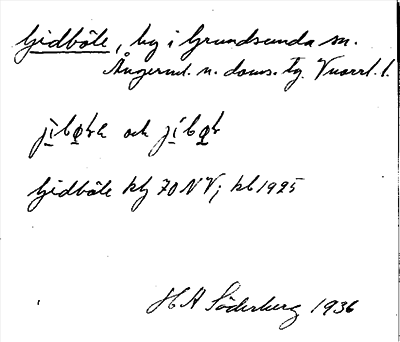 Gidböle, by i Grundsunda sn.
Ångerml. n. doms. tg. Vvarrl. l.
och
Gidböle kbj 70 NV; kb 1925
H A Söderberg 1936